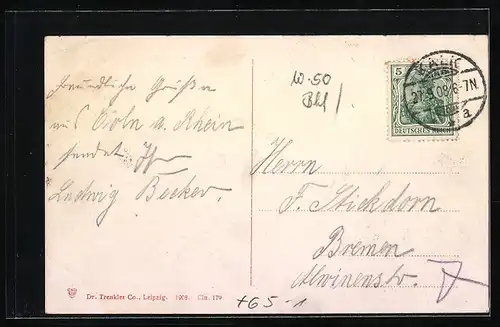 Freundliche Grüße
aus Cöln a. Rhein
sendet Ihr
Ludwig Becker.
10-50
5
DEUTSCHES REICH
KALK
27.9.08. 6-7N.
a
Herrn
F. Stickdorn
Bremen
Alwinenstr. 7
Dr. Trenkler Co., Leipzig. 1908. Cln. 179
+65-1